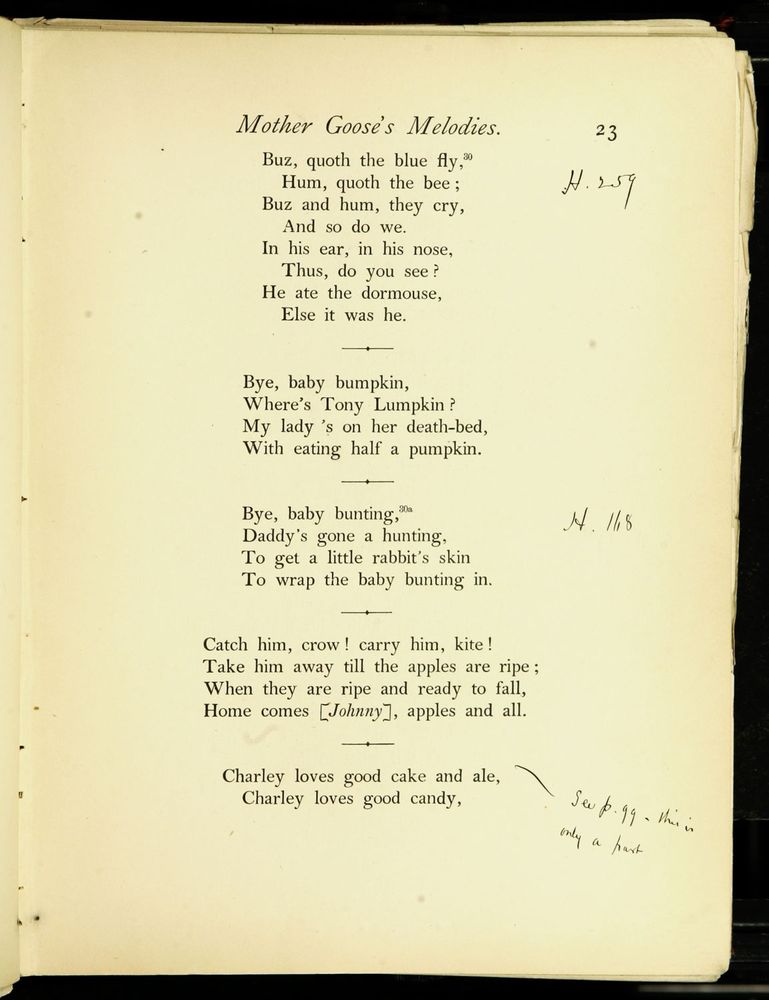 Mother Goose's Melodies. 23
Buz, quoth the blue fly,³⁰
Hum, quoth the bee ;
H. 259
Buz and hum, they cry,
And so do we.
In his ear, in his nose,
Thus, do you see ?
He ate the dormouse,
Else it was he.
Bye, baby bumpkin,
Where's Tony Lumpkin ?
My lady 's on her death-bed,
With eating half a pumpkin.
Bye, baby bunting,³⁰ᵃ
H. 118
Daddy's gone a hunting,
To get a little rabbit's skin
To wrap the baby bunting in.
Catch him, crow ! carry him, kite !
Take him away till the apples are ripe ;
When they are ripe and ready to fall,
Home comes [Johnny], apples and all.
Charley loves good cake and ale,
Charley loves good candy,
See p. 99 - this is
only a part